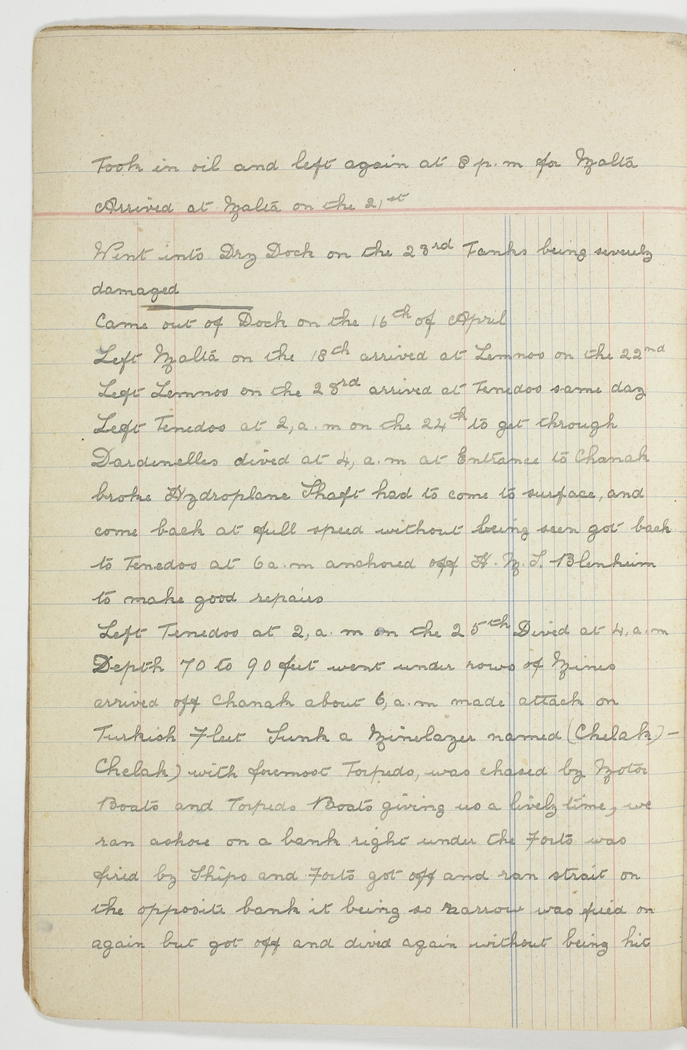 Took in oil and left again at 8 p.m for Malta
Arrived at Malta on the 21st
Went into Dry Dock on the 23rd Tanks being severely
damaged
Came out of Dock on the 16th of April
Left Malta on the 18th arrived at Lemnos on the 22nd
Left Lemnos on the 23rd arrived at Tenedos same day
Left Tenedos at 2, a.m on the 24th to get through
Dardenelles dived at 4, a.m at Entrance to Chanak
broke Hydroplane Shaft had to come to surface, and
come back at full speed without being seen got back
to Tenedos at 6 a.m anchored off H.M.S. Blenheim
to make good repairs
Left Tenedos at 2, a.m on the 25th Dived at 4, a.m
Depth 70 to 90 feet went under rows of Mines
arrived off Chanak about 6, a.m made attack on
Turkish Fleet Sunk a Minelayer named (Chelak) -
Chelak) with foremost Torpedo, was chased by Motor
Boats and Torpedo Boats giving us a lively time, we
ran ashore on a bank right under the Forts was
fired by Ships and Forts got off and ran strait on
the opposite bank it being so narrow was fired on
again but got off and dived again without being hit